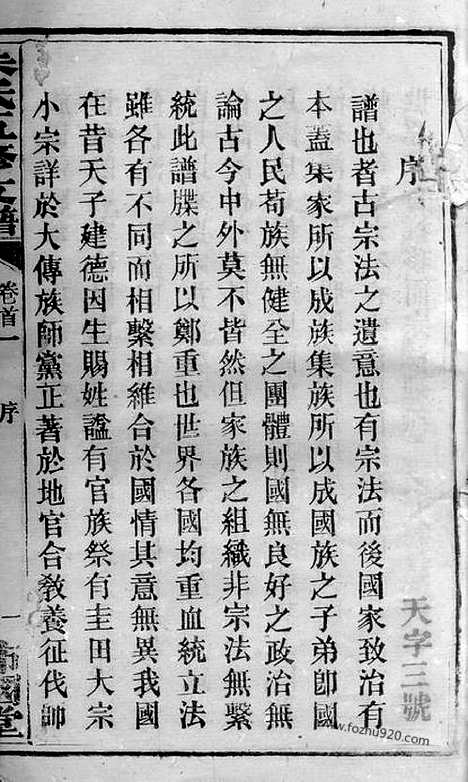 序
天字三號
譜也者古宗法之遺意也有宗法而後國家致治有
本蓋集家所以成族集族所以成國族之子弟卽國
之人民苟族無健全之團體則國無良好之政治無
論古今中外莫不皆然但家族之組織非宗法無繫
統此譜牒之所以鄭重也世界各國均重血統立法
雖各有不同而相繫相維合於國情其意無異我國
在昔天子建德因生賜姓諡有官族祭有圭田大宗
小宗詳於大傳族師黨正著於地官合敎養征伐師
氏五修支譜
卷首一
序
一
堂
www.fozhu920.com